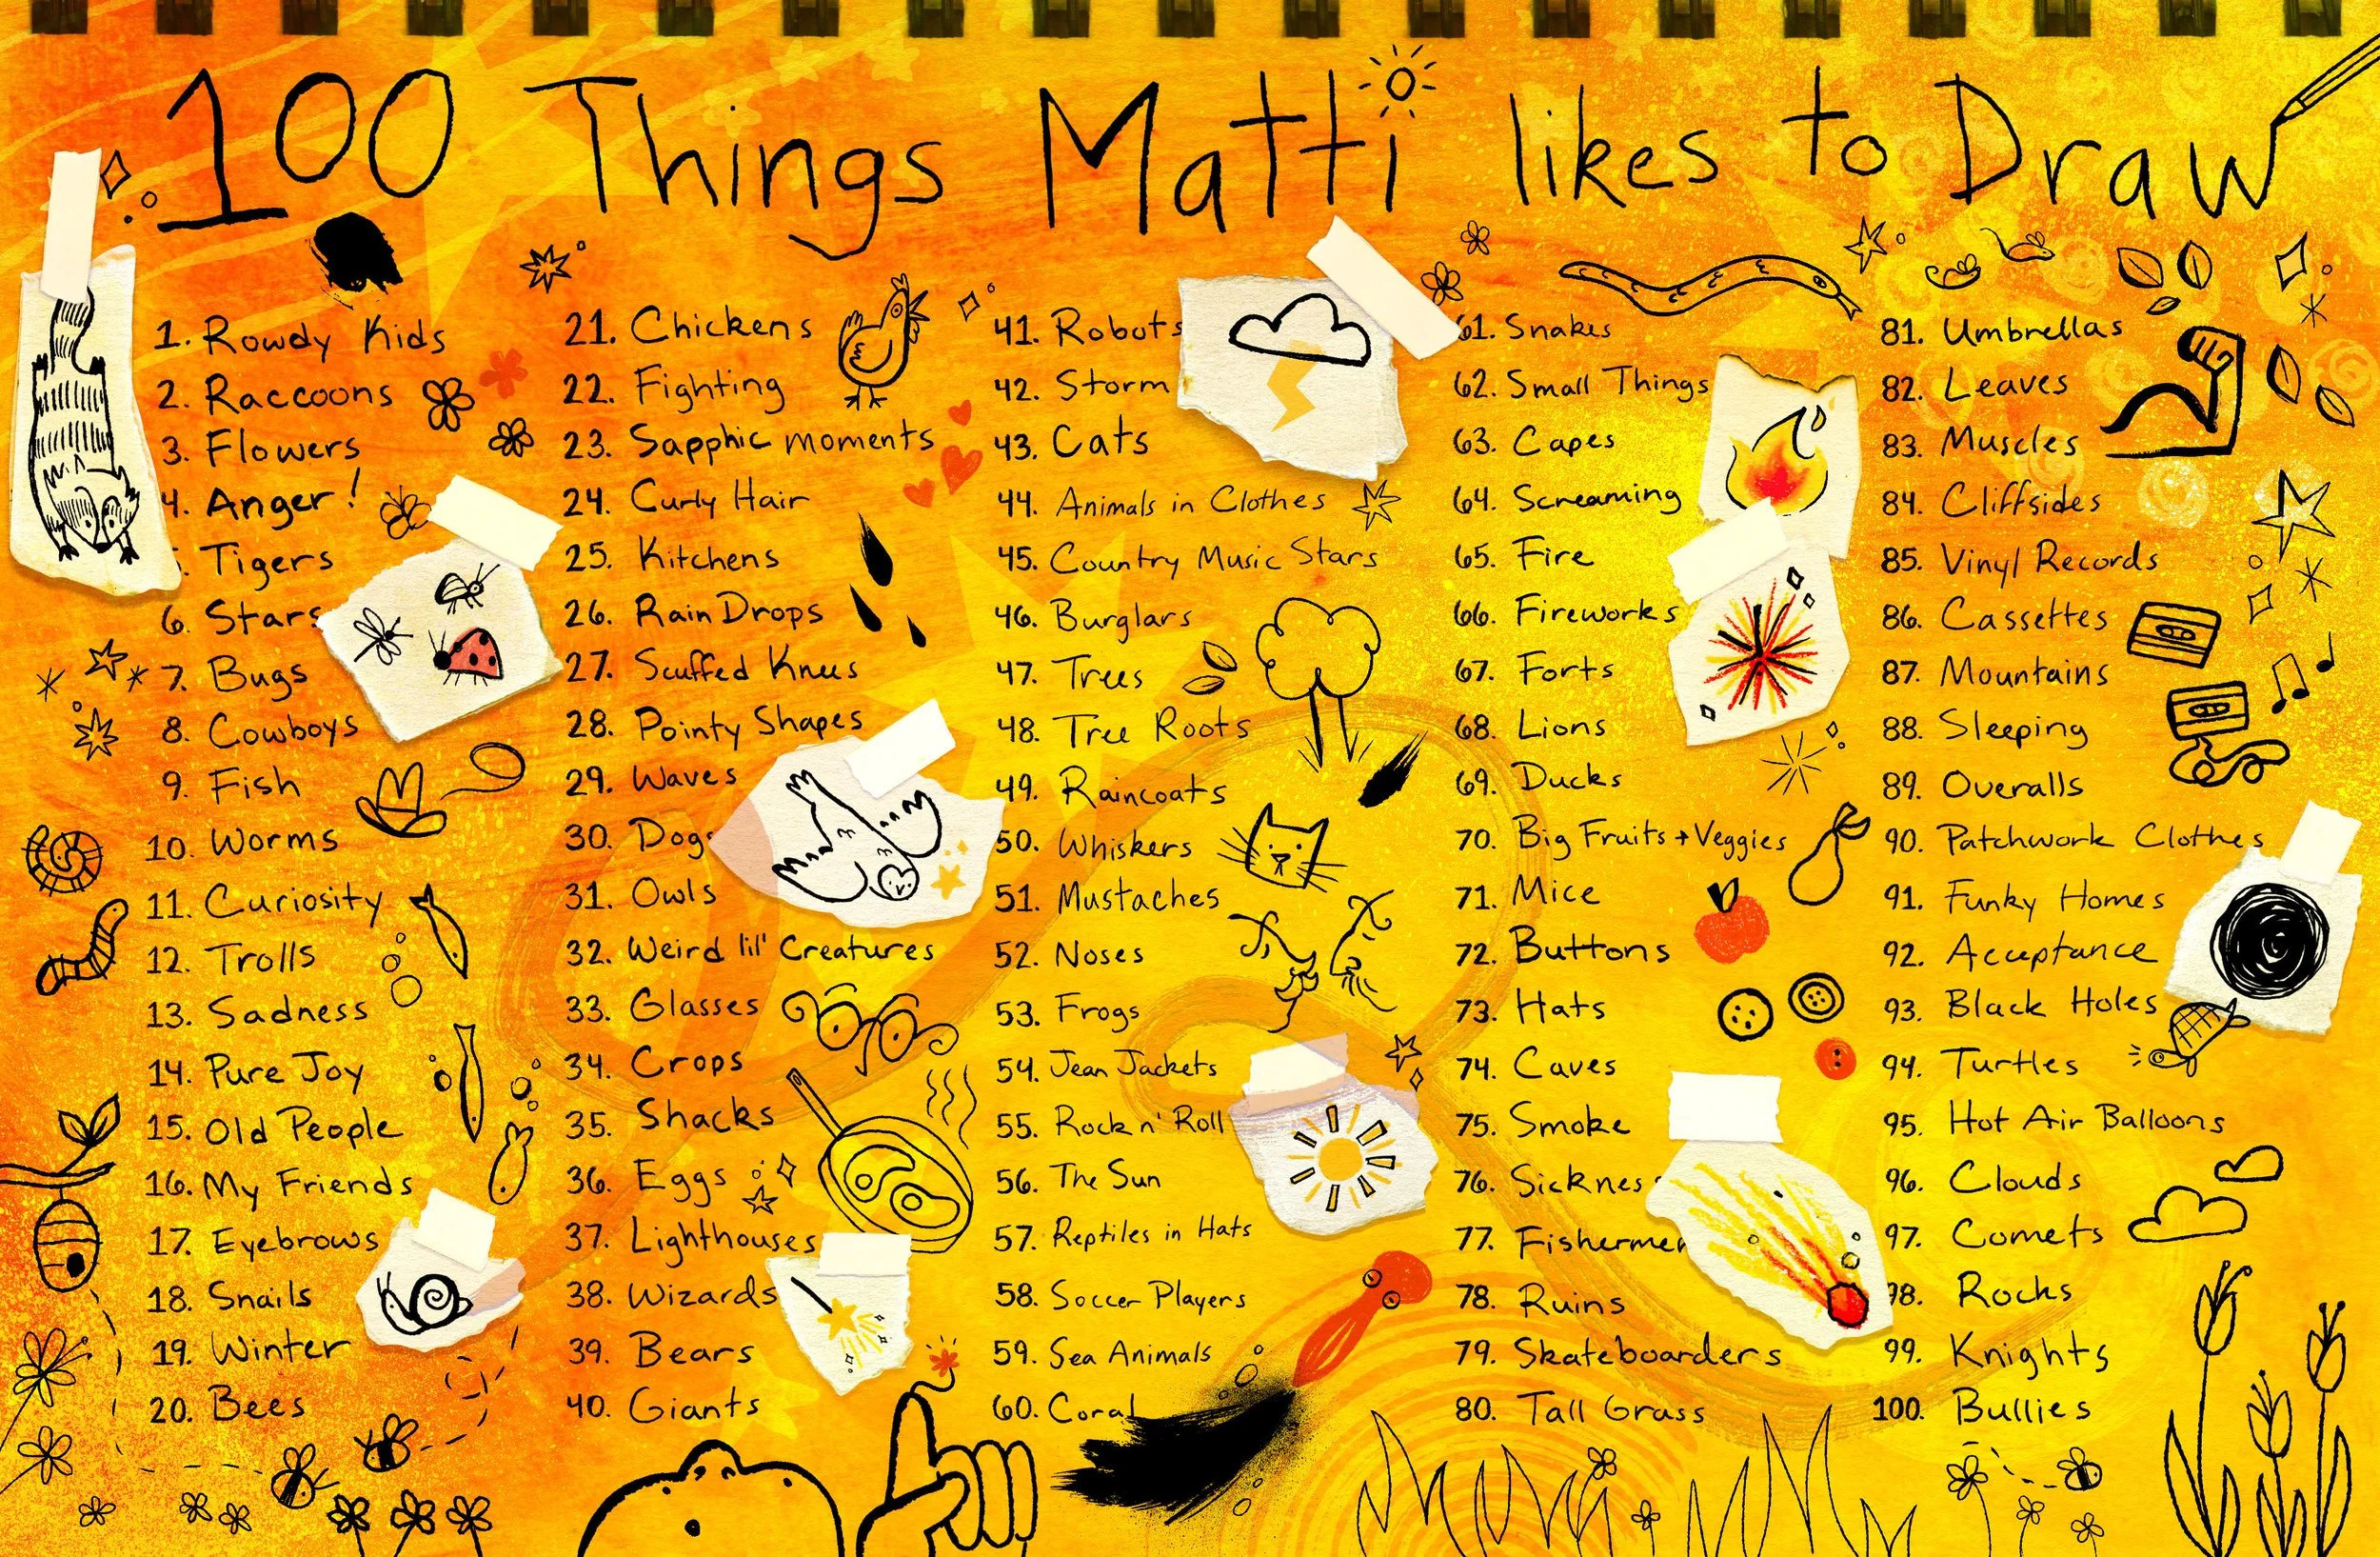 100 Things Matti likes to Draw
1. Rowdy Kids
2. Raccoons
3. Flowers
4. Anger!
5. Tigers
6. Stars
7. Bugs
8. Cowboys
9. Fish
10. Worms
11. Curiosity
12. Trolls
13. Sadness
14. Pure Joy
15. Old People
16. My Friends
17. Eyebrows
18. Snails
19. Winter
20. Bees
21. Chickens
22. Fighting
23. Sapphic moments
24. Curly Hair
25. Kitchens
26. Rain Drops
27. Scuffed Knees
28. Pointy Shapes
29. Waves
30. Dogs
31. Owls
32. Weird lil' Creatures
33. Glasses
34. Crops
35. Shacks
36. Eggs
37. Lighthouses
38. Wizards
39. Bears
40. Giants
41. Robots
42. Storm
43. Cats
44. Animals in Clothes
45. Country Music Stars
46. Burglars
47. Trees
48. Tree Roots
49. Raincoats
50. Whiskers
51. Mustaches
52. Noses
53. Frogs
54. Jean Jackets
55. Rock n' Roll
56. The Sun
57. Reptiles in Hats
58. Soccer Players
59. Sea Animals
60. Coral
61. Snakes
62. Small Things
63. Capes
64. Screaming
65. Fire
66. Fireworks
67. Forts
68. Lions
69. Ducks
70. Big Fruits + Veggies
71. Mice
72. Buttons
73. Hats
74. Caves
75. Smoke
76. Sickness
77. Fishermen
78. Ruins
79. Skateboarders
80. Tall Grass
81. Umbrellas
82. Leaves
83. Muscles
84. Cliffsides
85. Vinyl Records
86. Cassettes
87. Mountains
88. Sleeping
89. Overalls
90. Patchwork Clothes
91. Funky Homes
92. Acceptance
93. Black Holes
94. Turtles
95. Hot Air Balloons
96. Clouds
97. Comets
98. Rocks
99. Knights
100. Bullies